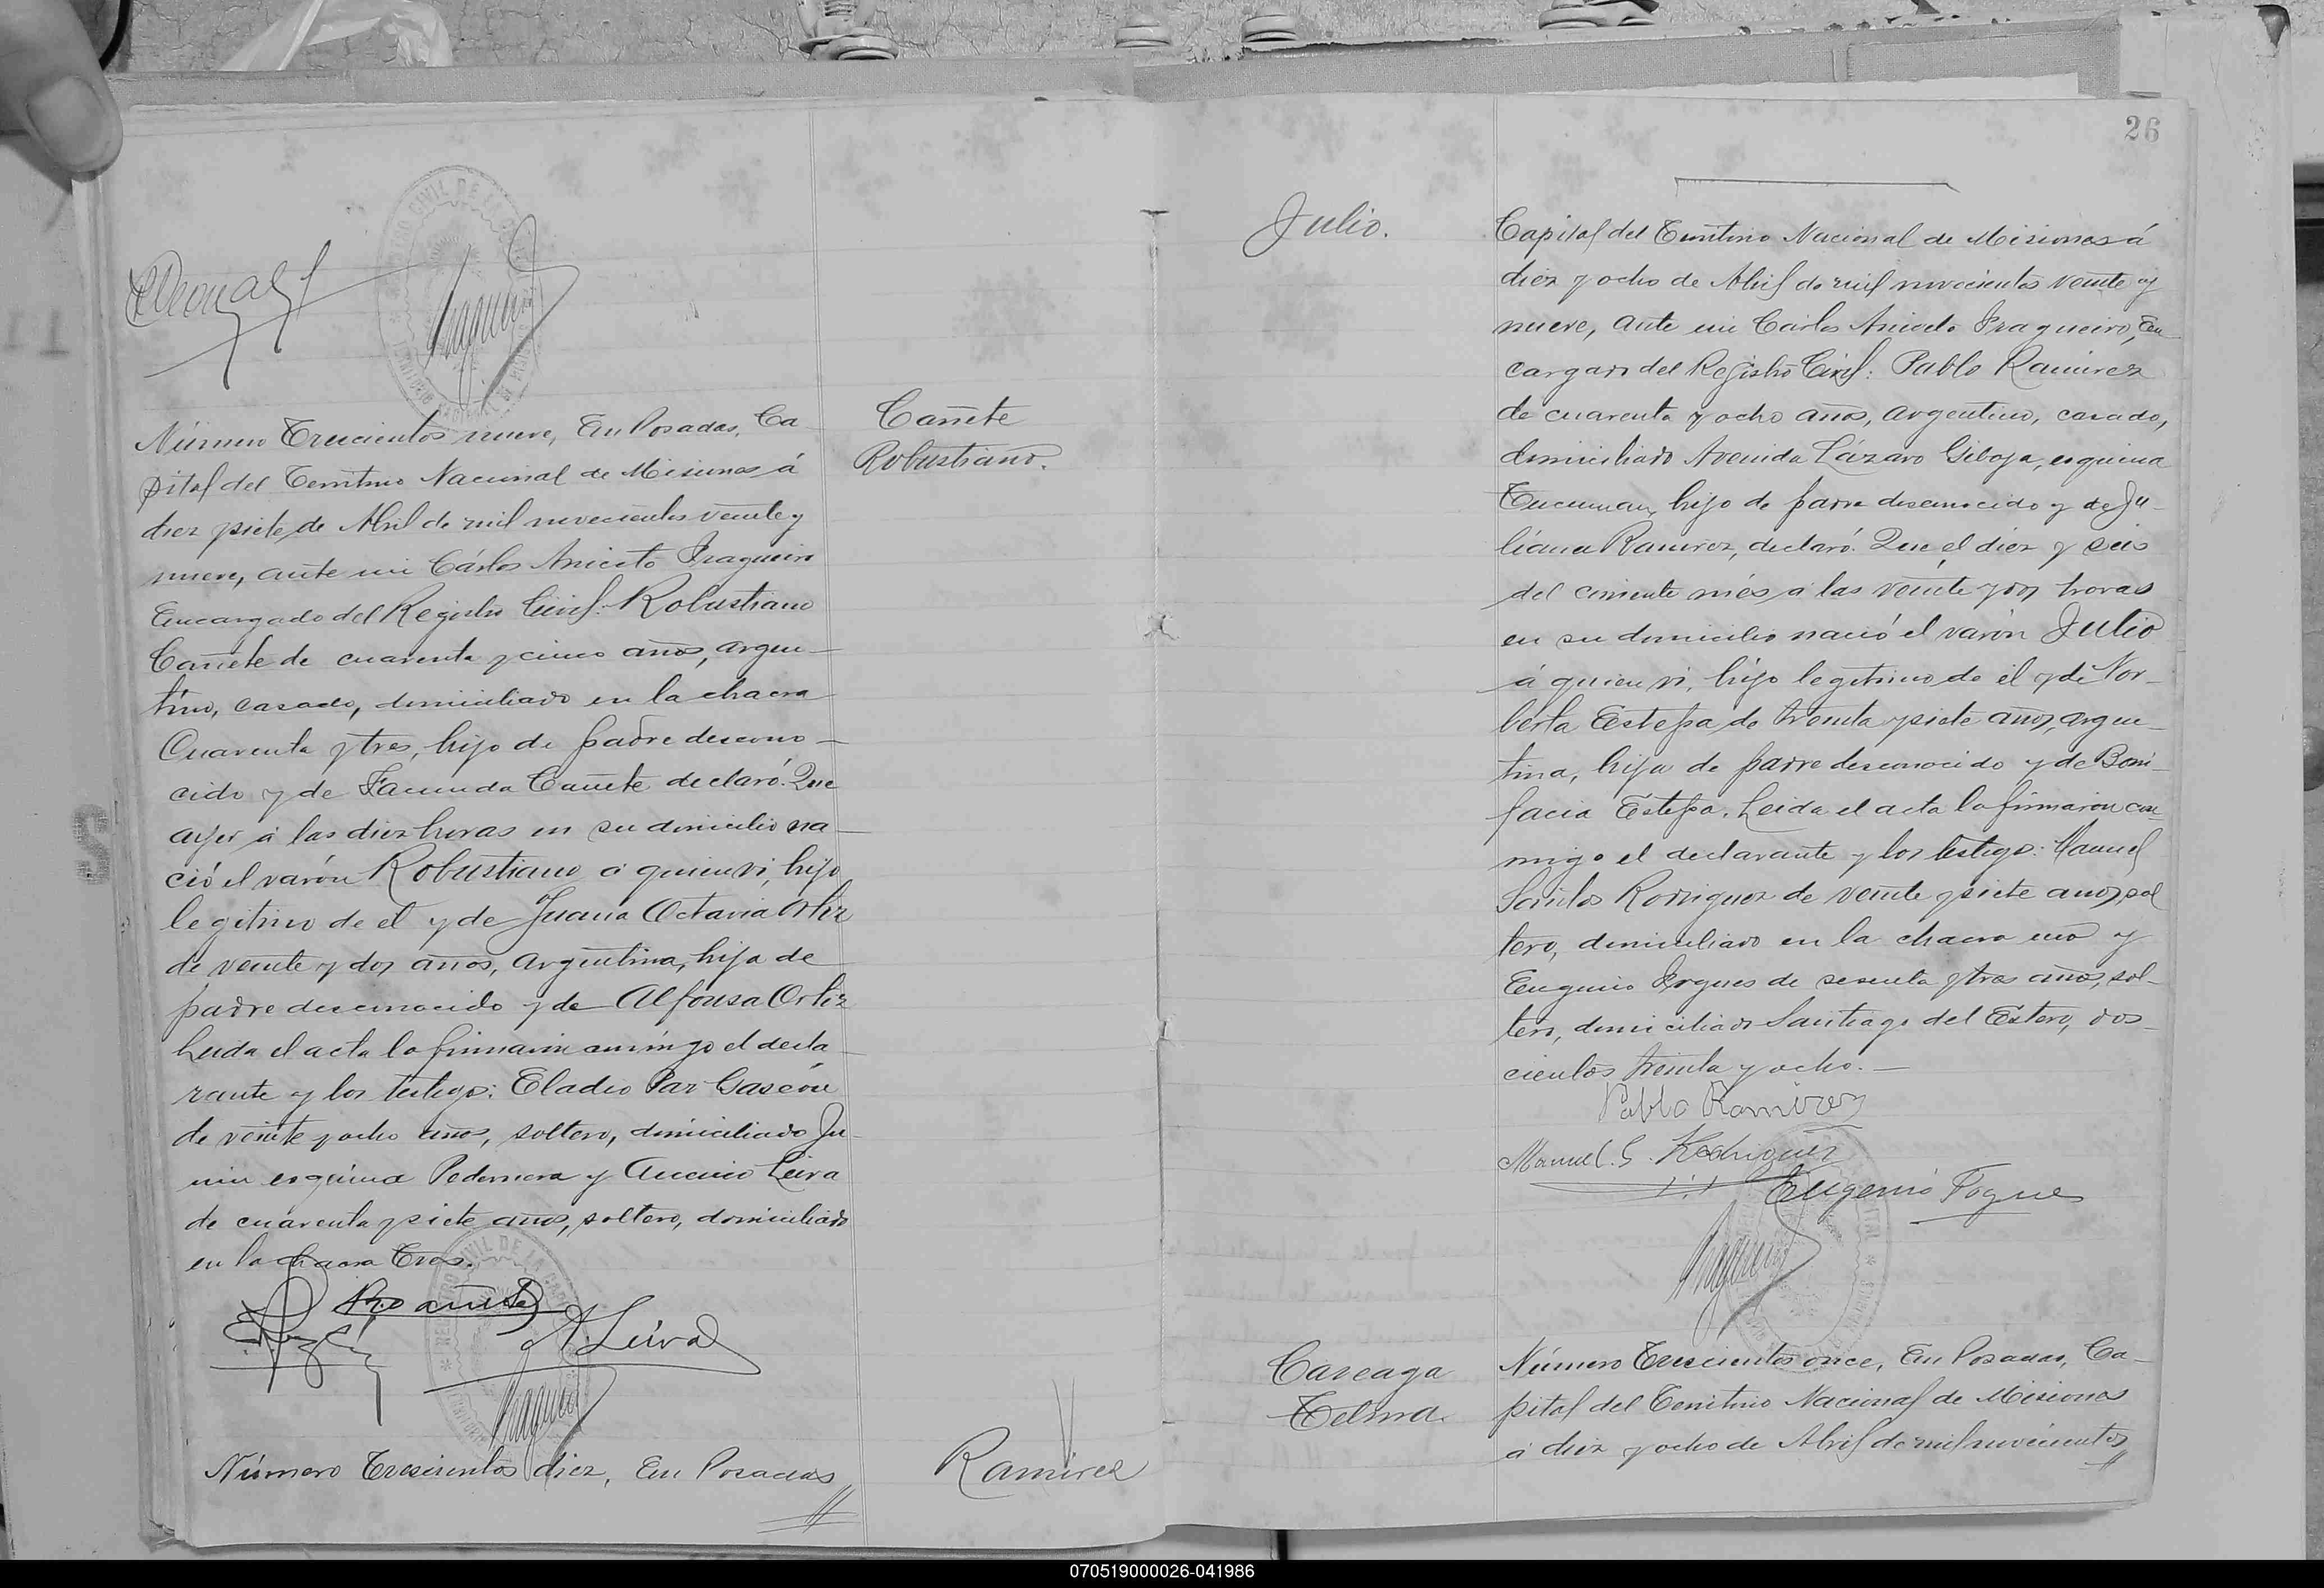 Número Trescientos nueve, En Posadas, Ca-
pital del Territorio Nacional de Misiones á
diez y siete de Abril de mil novecientos veinte y
nueve, ante mi Cárlos Aniceto Fragueiro
Encargado del Registro Civil: Robustiano
Cañete de cuarenta y cinco años, argen-
tino, casado, domiciliado en la chacra
Cuarenta y tres, hijo de padre descono-
cido y de Facunda Cañete declaró: Que
ayer á las diez horas en su domicilio na-
ció el varón Robustiano á quien vi, hijo
legitimo de el y de Juana Octavia Ortiz
de veinte y dos años, argentina, hija de
padre desconocido y de Alfonsa Ortiz
Leida el acta la firmaron conmigo el decla-
rante y los testigos: Eladio Paz Gascón
de veinte y ocho años, soltero, domiciliado Ju-
nin esquina Pedernera y Leiva
de cuarenta y siete años, soltero, domiciliado
en la chacra Tres.
A. Leiva
Número Trescientos diez, En Posadas
Cañete
Robustiano.
Ramirez
26
Julio.
Capital del Territorio Nacional de Misiones á
diez y ocho de Abril de mil novecientos veinte y
nueve, ante mi Carlos Aniceto Fragueiro, En-
cargado del Registro Civil: Pablo Ramirez
de cuarenta y ocho años, argentino, casado,
domiciliado Avenida Lázaro Giboja, esquina
Tucuman, hijo de padre desconocido y de Ju-
liana Ramirez, declaró: Que el diez y seis
del corriente més á las veinte y dos horas
en su domicilio nació el varón Julio
á quien vi, hijo legitimo de él y de Nor-
berta Estepa de treinta y siete años, argen-
tina, hija de padre desconocido y de Boni-
facia Estepa. Leida el acta la firmaron con-
migo el declarante y los testigos: Manuel
Santos Rodriguez de veinte y siete años, sol
tero, domiciliado en la chacra uno y
Eugenio Fogues de sesenta y tres años, sol-
tero, domiciliado Santiago del Estero, dos-
cientos treinta y ocho.—
Pablo Ramirez
Manuel. S. Rodriguez
Eugenio Fogues
Careaga
Telma.
Número Trescientos once, En Posadas, Ca-
pital del Territorio Nacional de Misiones
á diez y ocho de Abril de mil novecientos
070519000026-041986